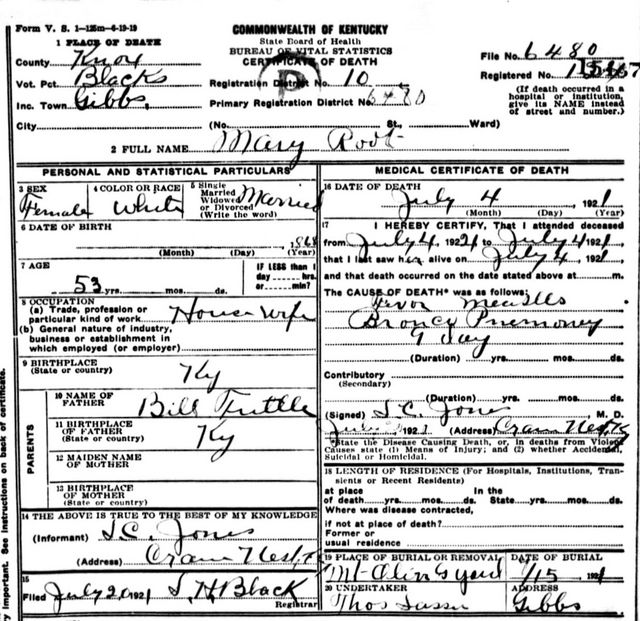 Form V. S. 1-125m-6-19-19
COMMONWEALTH OF KENTUCKY
State Board of Health
BUREAU OF VITAL STATISTICS
CERTIFICATE OF DEATH
1 PLACE OF DEATH
County Knox
Vot. Pct. Blacks
Inc. Town Gibbs
City
File No. 6480
Registered No.
(If death occurred in a hospital or institution, give its NAME instead of street and number.)
Registration District No. 10
Primary Registration District No. 6480
(No. St. Ward)
2 FULL NAME Mary Root
PERSONAL AND STATISTICAL PARTICULARS
3 SEX Female
4 COLOR OR RACE White
5 Single Married Widowed or Divorced (Write the word) Married
6 DATE OF BIRTH 1868
(Month) (Day) (Year)
7 AGE
53 yrs. mos. ds.
IF LESS than 1 day hrs. or min.?
8 OCCUPATION
(a) Trade, profession or particular kind of work House wife
(b) General nature of industry, business or establishment in which employed (or employer)
9 BIRTHPLACE
(State or country) Ky
PARENTS
10 NAME OF FATHER Bill Tuttle
11 BIRTHPLACE OF FATHER
(State or country) Ky
12 MAIDEN NAME OF MOTHER
13 BIRTHPLACE OF MOTHER
(State or country)
14 THE ABOVE IS TRUE TO THE BEST OF MY KNOWLEDGE
(Informant) S.C. Jones
(Address) Crain Nest,
15
Filed July 20 1921 S. H Black
Registrar
MEDICAL CERTIFICATE OF DEATH
16 DATE OF DEATH July 4, 1921
(Month) (Day) (Year)
17 I HEREBY CERTIFY, That I attended deceased
from July 4, 1921 to July 4 1921
that I last saw her alive on July 4, 1921
and that death occurred on the date stated above at m.
The CAUSE OF DEATH* was as follows:
Measlls
Bronco Pnemoney
9 day
(Duration) yrs. mos. ds.
Contributory
(Secondary)
(Duration) yrs. mos. ds.
(Signed) S.C. Jones, M. D.
July 1921 (Address) Crain Nest, Ky
*State the Disease Causing Death, or, in deaths from Violent Causes state (1) Means of Injury; and (2) whether Accidental, Suicidal or Homicidal.
18 LENGTH OF RESIDENCE (For Hospitals, Institutions, Transients or Recent Residents)
at place of death yrs. mos. ds. In the State yrs. mos. ds.
Where was disease contracted,
if not at place of death?
Former or usual residence
19 PLACE OF BURIAL OR REMOVAL Mt-Olive G yard
DATE OF BURIAL 7/15 1921
20 UNDERTAKER Thos
ADDRESS Gibbs
y important. See instructions on back of certificate.